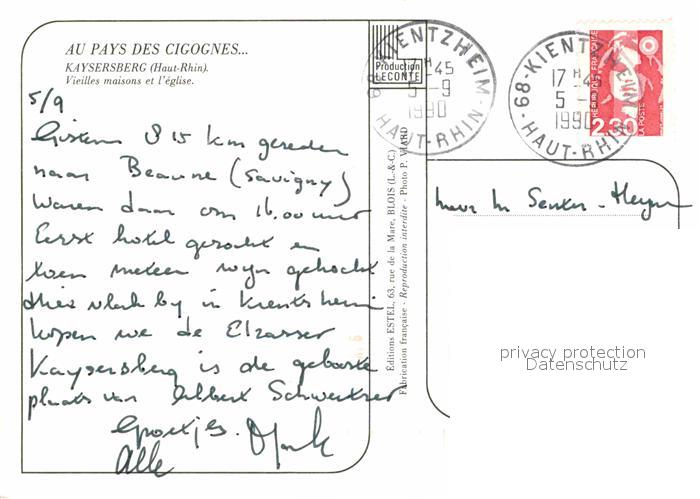 AU PAYS DES CIGOGNES...
KAYSERSBERG (Haut-Rhin).
Vieilles maisons et l'église.
5/9
Gisteren 815 km gereden
naar Beaune (Savigny)
Waren daar om 16.00 uur
Eerst hotel gezocht en
toen meteen wijn gehaald
Hier vlak bij in Kientzheim
kopen we de Elzasser
Kaysersberg is de geboorte
plaats van Albert Schweitzer
Groetjes.
Alle
Production
LECONTE
Éditions ESTEL, 63, rue de la Mare, BLOIS (L.-&-C.)
Fabrication française - Reproduction interdite - Photo P. VIARD
68-KIENTZHEIM
17 H 45
5-9
1990
HAUT-RHIN
68-KIENTZHEIM
17 H 45
5-9
1990
HAUT-RHIN
RÉPUBLIQUE FRANÇAISE
2,30
LA POSTE
privacy protection
Datenschutz